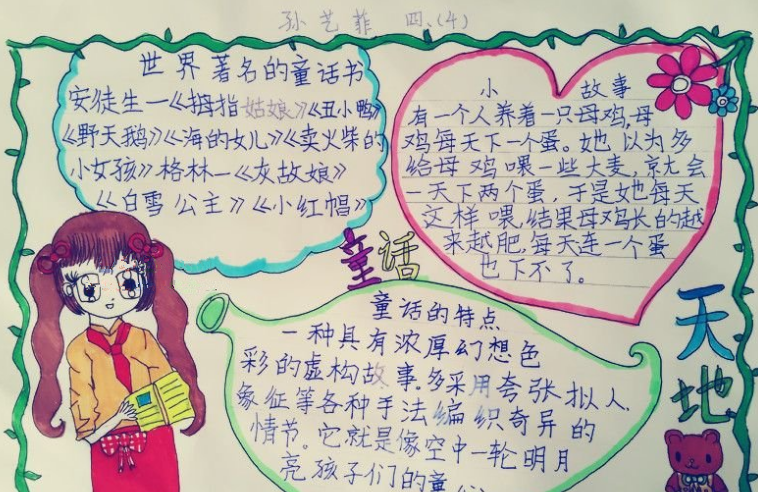 孙艺菲 四、(4)
世界著名的童话书
安徒生—《拇指姑娘》《丑小鸭》
《野天鹅》《海的女儿》《卖火柴的
小女孩》格林—《灰故娘》
《白雪公主》《小红帽》
小 故事
有一个人养着一只母鸡,母
鸡每天下一个蛋。她以为多
给母鸡喂一些大麦,就会
一天下两个蛋,于是她每天
这样喂,结果母鸡长的越
来越肥,每天连一个蛋
也下不了。
童话
天地
童话的特点
一种具有浓厚幻想色
彩的虚构故事.多采用夸张拟人.
象征等各种手法编织奇异的
情节。它就是像空中一轮明月
亮孩子们的童